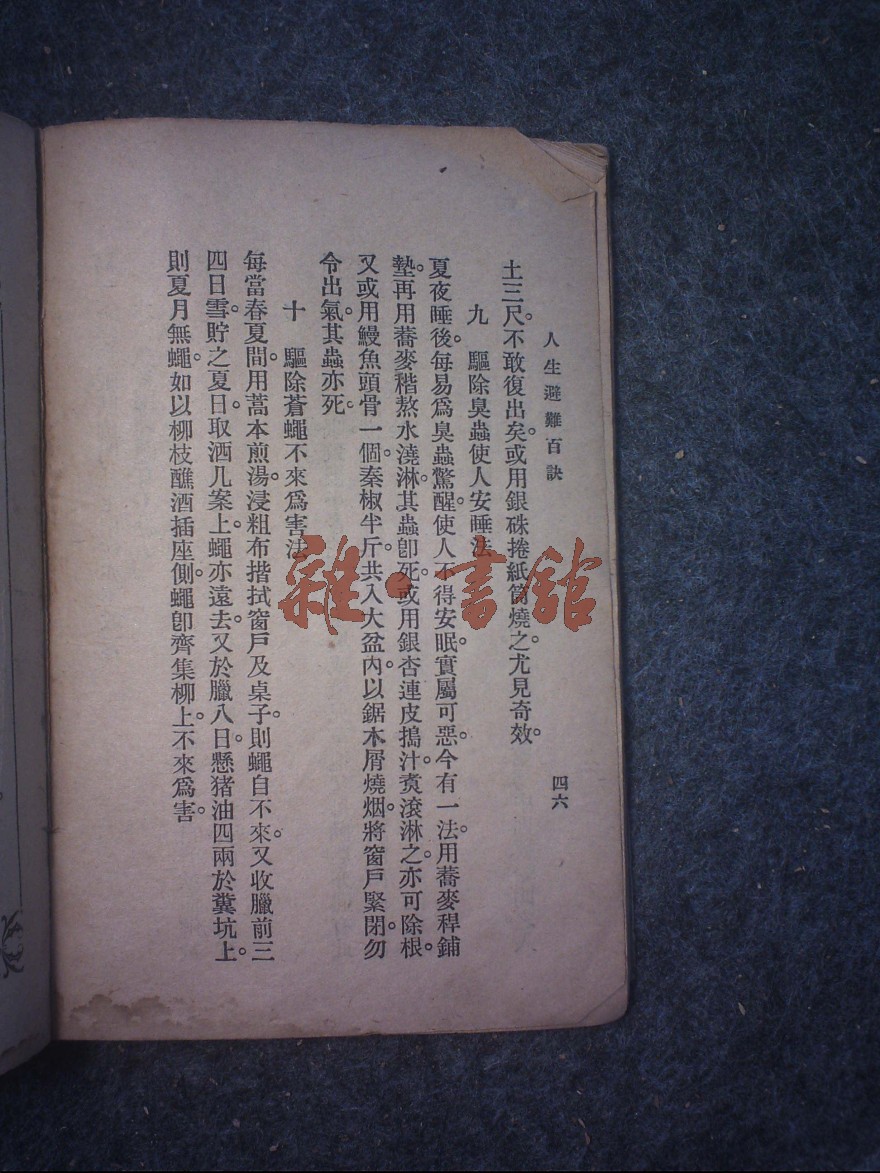 人生避難百訣
四六
土三尺。不敢復出矣。或用銀硃捲紙筒燒之。尤見奇效。
九 驅除臭蟲使人安睡法
夏夜睡後。每易爲臭蟲驚醒。使人不得安眠。實屬可惡。今有一法。用蕎麥稈鋪
墊。再用蕎麥稭熬水澆淋。其蟲卽死。或用銀杏連皮搗汁。煑滾淋之。亦可除根。
又或用鰻魚頭骨一個。秦椒半斤。共入大盆內。以鋸木屑燒烟。將窗戶緊閉。勿
令出氣。其蟲亦死。
十 驅除蒼蠅不來爲害法
每當春夏間。用蒿本煎湯。浸粗布揩拭窗戶及桌子。則蠅自不來。又收臘前三
四日雪。貯之夏日。取洒几案上。蠅亦遠去。又於臘八日。懸猪油四兩於糞坑上。
則夏月無蠅。如以柳枝醮酒插座側。蠅卽齊集柳上。不來爲害。
雜·書館